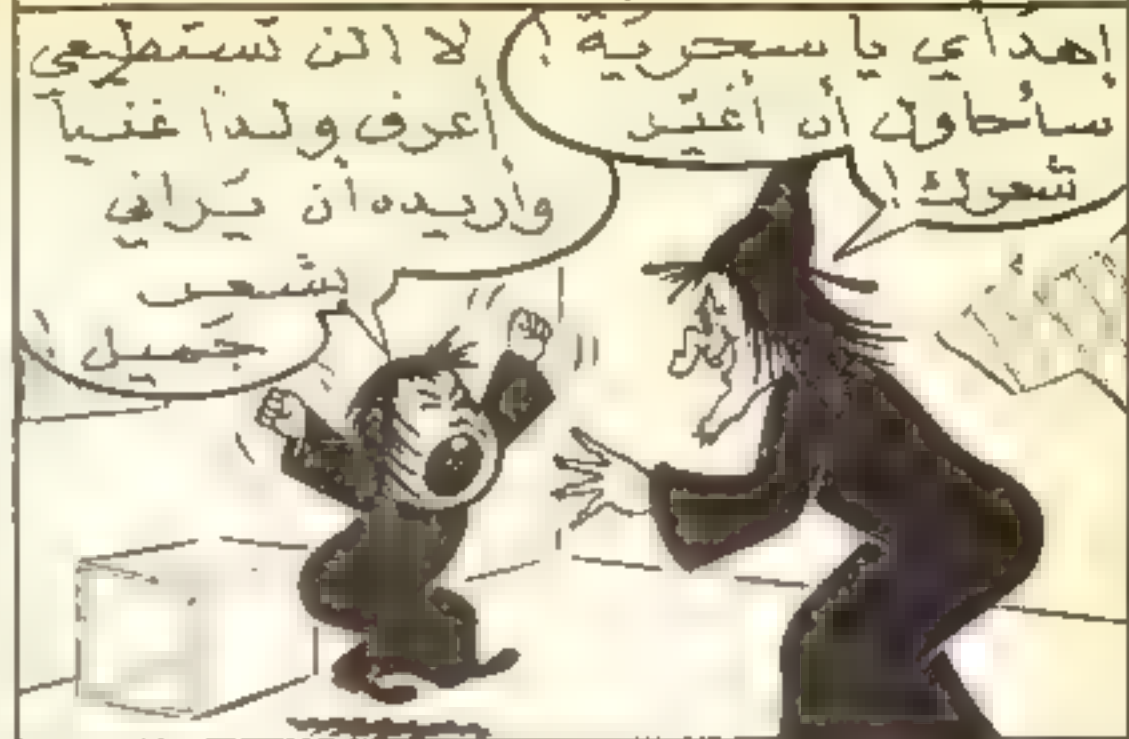 إهدأي يا سحريّة !
سأحاول أن أغيّر
شعرك !
لا ! لن تستطيعي
أعرف ولداً غنياً
وأريده أن يَراني
بشعر
جَميل !